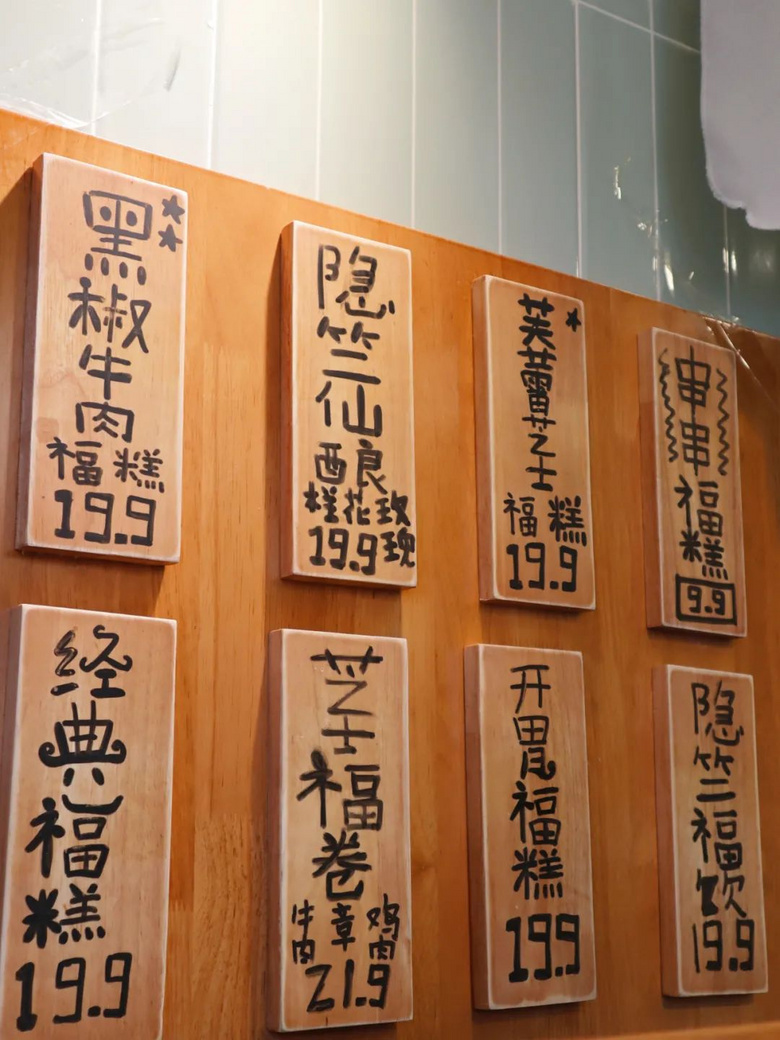 黑椒牛肉
福糕
19.9
隐竺仙酿
桂花玫瑰
19.9
芙蕾芝士
福糕
19.9
串串福糕
9.9
经典福糕
19.9
芝士福卷
牛肉 章 鸡肉
21.9
开胃福糕
19.9
隐竺福饮
19.9